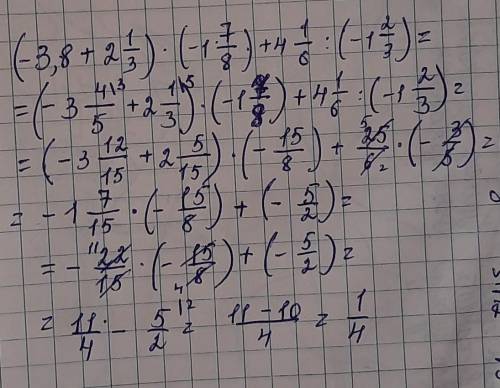 (-3,8 + 2 1/3) · (-1 7/8) + 4 1/6 : (-1 2/3) =
= (-3 4/5 \3 + 2 1/3 \5) · (-1 7/8) + 4 1/6 : (-1 2/3) =
= (-3 12/15 + 2 5/15) · (-15/8) + 5 25/6 2 · (-3/5) =
= -1 7/15 · (-15/8) + (-5/2) =
= - 11 22/15 · (-15/8 4) + (-5/2) =
= 11/4 - 5/2 \2 = 11-10/4 = 1/4